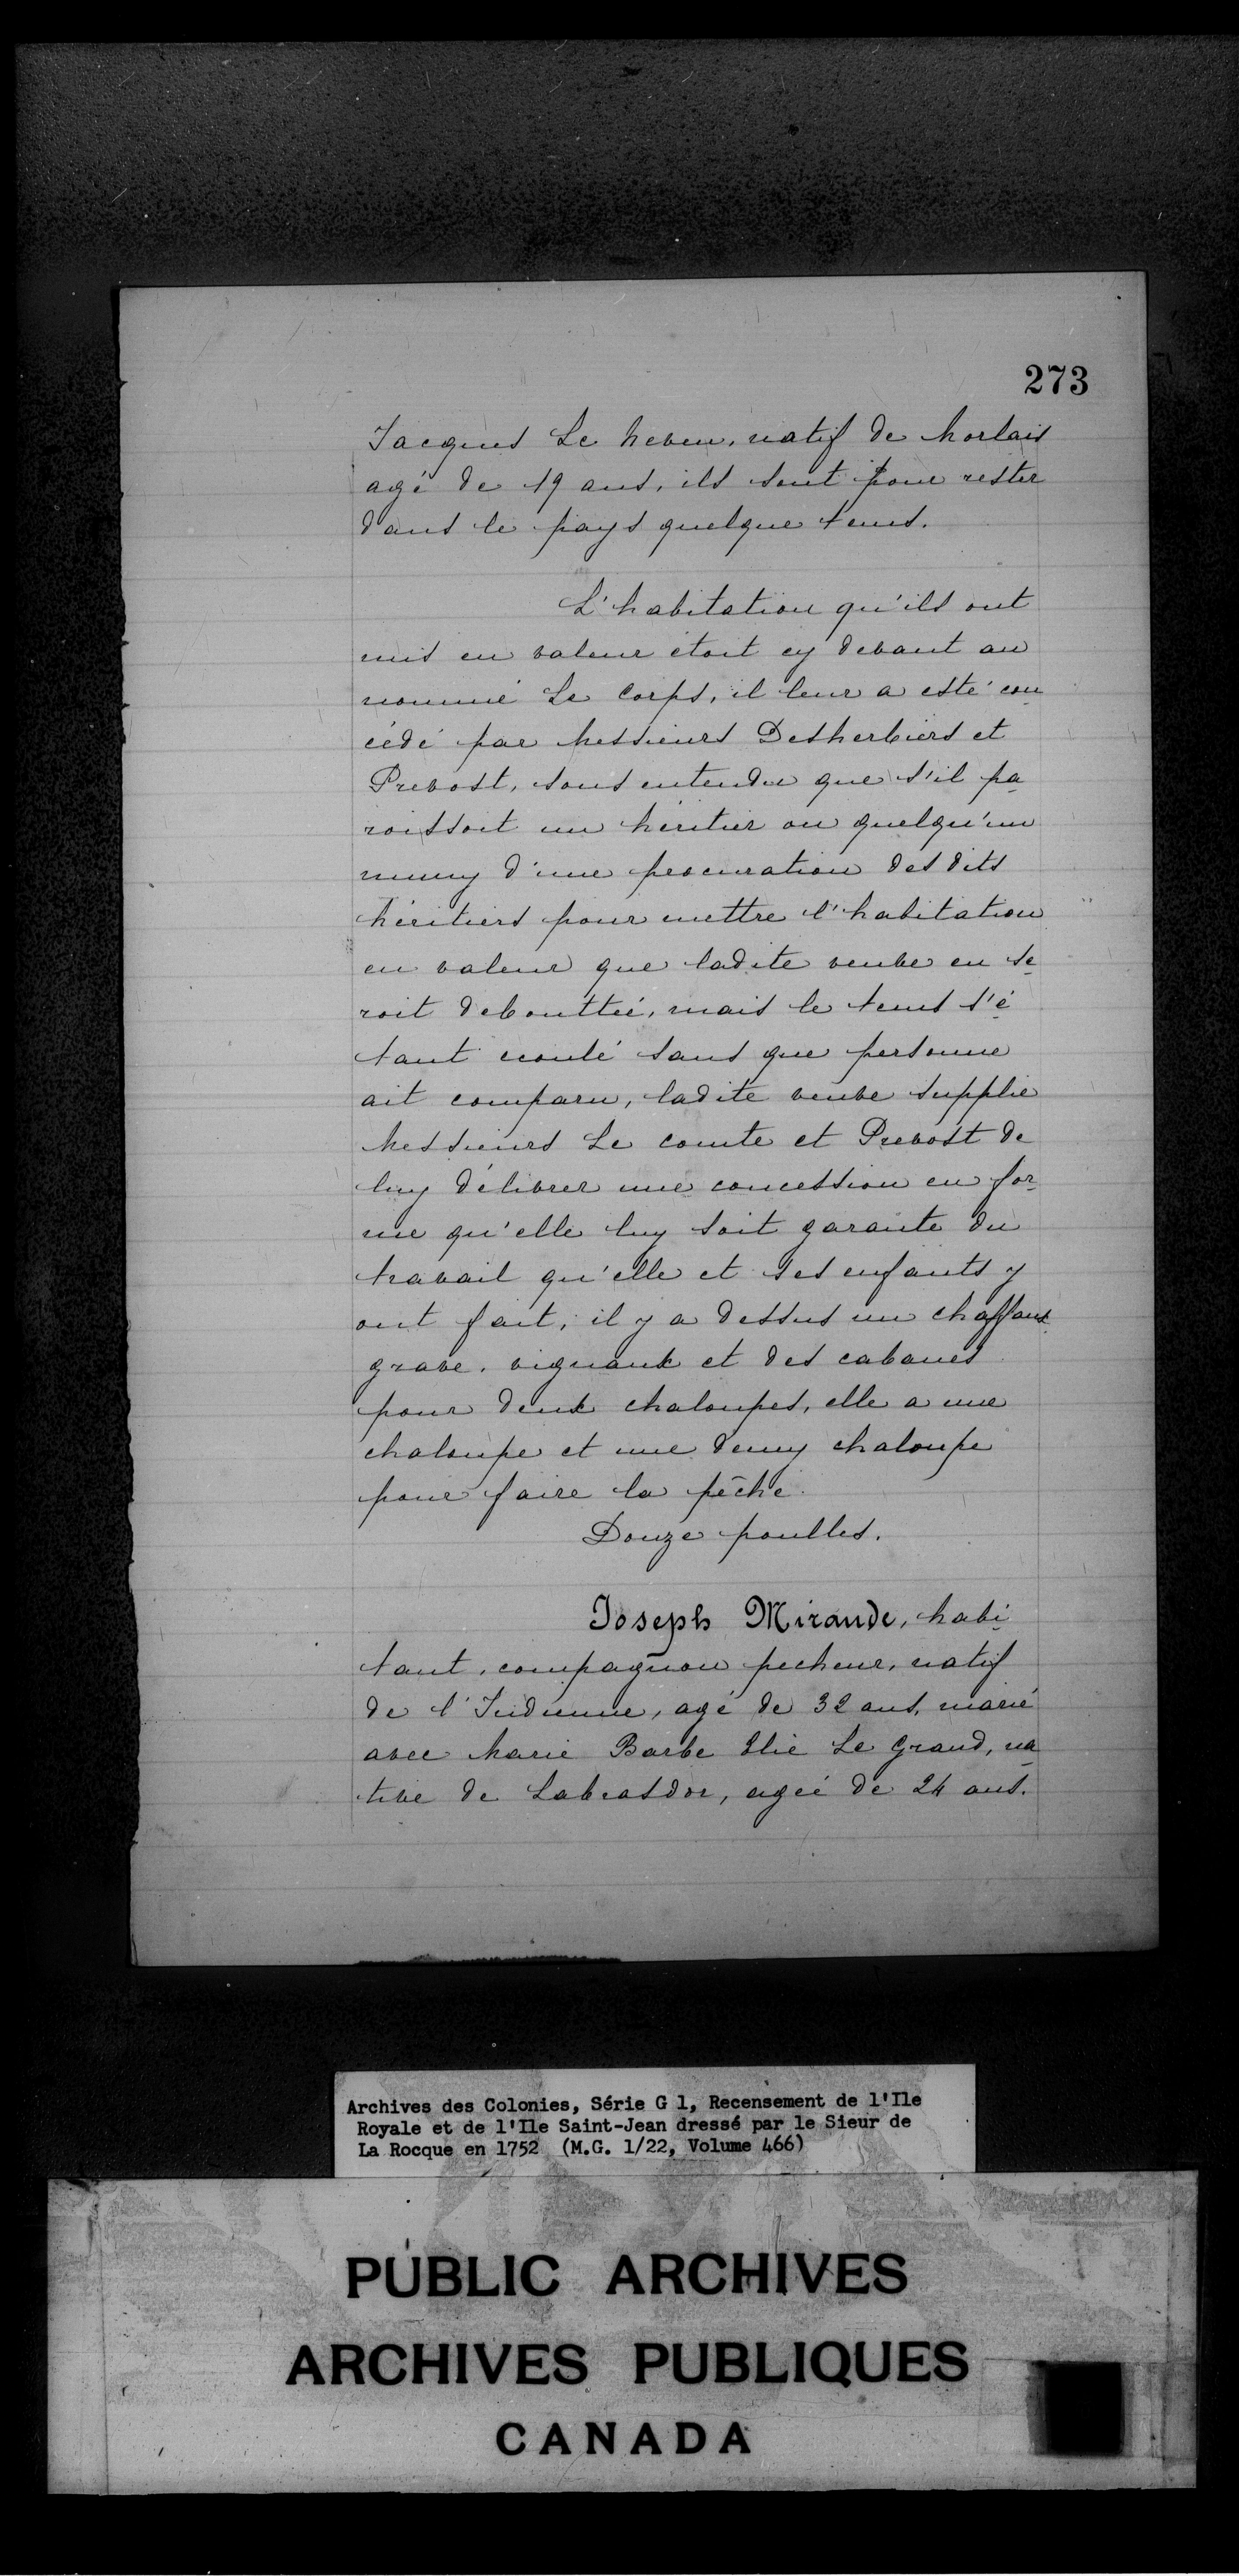 273
Jacques Le Neveu, natif de Morlais
agé de 19 ans, ils sont pour rester
dans le pays quelque tems.
L'habitation qu'ils ont
mis en valeur étoit cy devant au
nommé Le Corps, il leur a esté con
cédé par Messieurs Desherbiers et
Prevost, sous entendu que s'il pa
roissoit un héritier ou quelqu'un
muny d'une procuration des dits
héritiers pour mettre l'habitation
en valeur que ladite veuve en se
roit debouttée, mais le tems s'é
tant ecoulé sans que personne
ait comparu, ladite veuve supplie
Messieurs Le comte et Prevost de
luy délivrer une concession en for
me qu'elle luy soit garante du
travail qu'elle et ses enfants y
ont fait, il y a dessus un chaffaux
grave, vignaux et des cabanes
pour deux chaloupes, elle a une
chaloupe et une demy chaloupe
pour faire la pêche.
Douze poulles.
Joseph Mirande, habi
tant, compagnon pecheur, natif
de l'Indienne, agé de 32 ans, marié
avec Marie Barbe Elie Le Grand, na
tive de Labrasdor, agée de 24 ans.
Archives des Colonies, Série G 1, Recensement de l'Ile
Royale et de l'Ile Saint-Jean dressé par le Sieur de
La Rocque en 1752 (M.G. 1/22, Volume 466)
PUBLIC ARCHIVES
ARCHIVES PUBLIQUES
CANADA